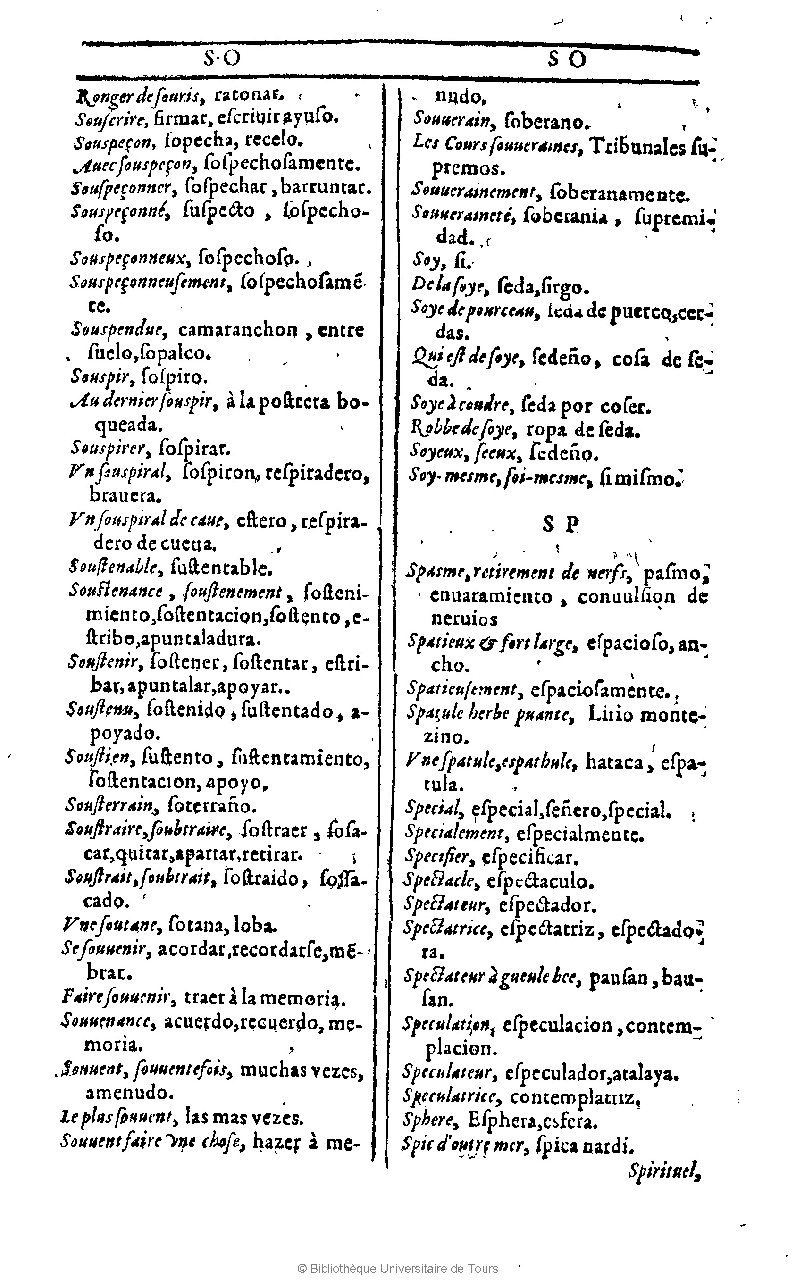 S O
Ronger de ſouris, ratonar.
Souſcrire, firmar, eſcriuir ayuſo.
Souspeçon, ſopecha, recelo.
Auec ſouspeçon, ſoſpechoſamente.
Souſpeçonner, ſoſpechar, barruntar.
Souspeçonné, ſuſpecto, ſoſpecho-
ſo.
Souspeçonneux, ſoſpechoſo.
Souspeçonneuſement, ſoſpechoſamẽ-
te.
Souspendue, camaranchon, entre
ſuelo, ſopalco.
Souspir, ſoſpiro.
Au dernier ſouspir, à la poſtrera bo-
queada.
Souspirer, ſoſpirar.
Vn ſouspiral, ſoſpiron, reſpiradero,
brauera.
Vn ſouspiral de caue, eſtero, reſpira-
dero de cueua.
Souſtenable, ſuſtentable.
Souſtenance, ſouſtenement, ſoſteni-
miento, ſoſtentacion, ſoſtento, e-
ſtribo, apuntaladura.
Souſtenir, ſoſtener, ſoſtentar, eſtri-
bar, apuntalar, apoyar.
Souſtenu, ſoſtenido, ſuſtentado, a-
poyado.
Souſtien, ſuſtento, ſuſtentamiento,
ſoſtentacion, apoyo,
Souſterrain, ſoterraño.
Souſtraire, ſoubtraire, ſoſtraer, ſoſa-
car, quitar, apartar, retirar.
Souſtrait, ſoubtrait, ſoſtraido, ſoſſa-
cado.
Vne ſoutane, ſotana, loba.
Se ſouuenir, acordar, recordarſe, mẽ-
brar.
Faire ſouuenir, traer à la memoria.
Souuenance, acuerdo, recuerdo, me-
moria.
Souuent, ſouuentefois, muchas vezes,
amenudo.
Le plus ſouuent, las mas vezes.
Souuent faire vne choſe, hazer à me-
S O
nudo.
Souuerain, ſoberano.
Les Cours ſouueraines, Tribunales ſu-
premos.
Souuerainement, ſoberanamente.
Souueraineté, ſoberania, ſupremi-
dad.
Soy, ſi.
De la ſoye, ſeda, ſirgo.
Soye de pourceau, ſeda de puerco, cer-
das.
Qui eſt de ſoye, ſedeño, coſa de ſe-
da.
Soye à coudre, ſeda por coſer.
Robbe de ſoye, ropa de ſeda.
Soyeux, ſeeux, ſedeño.
Soy-mesme, ſoi-mesme, ſi miſmo.
S P
Spasme, retirement de nerfs, paſmo,
enuaramiento, conuulſion de
neruios
Spatieux & fort large, eſpacioſo, an-
cho.
Spatieuſement, eſpacioſamente.
Spatule herbe puante, Lirio monte-
zino.
Vne ſpatule, espathule, hataca, eſpa-
tula.
Special, eſpecial, ſeñero, ſpecial.
Specialement, eſpecialmente.
Specifier, eſpecificar.
Spectacle, eſpectaculo.
Spectateur, eſpectador.
Spectatrice, eſpectatriz, eſpectado-
ra.
Spectateur à gueule bee, pauſan, bau-
ſan.
Speculation, eſpeculacion, contem-
placion.
Speculateur, eſpeculador, atalaya.
Speculatrice, contemplatriz,
Sphere, Eſphera, esfera.
Spic d'outre mer, ſpica nardi.
Spirituel,
© Bibliothèque Universitaire de Tours